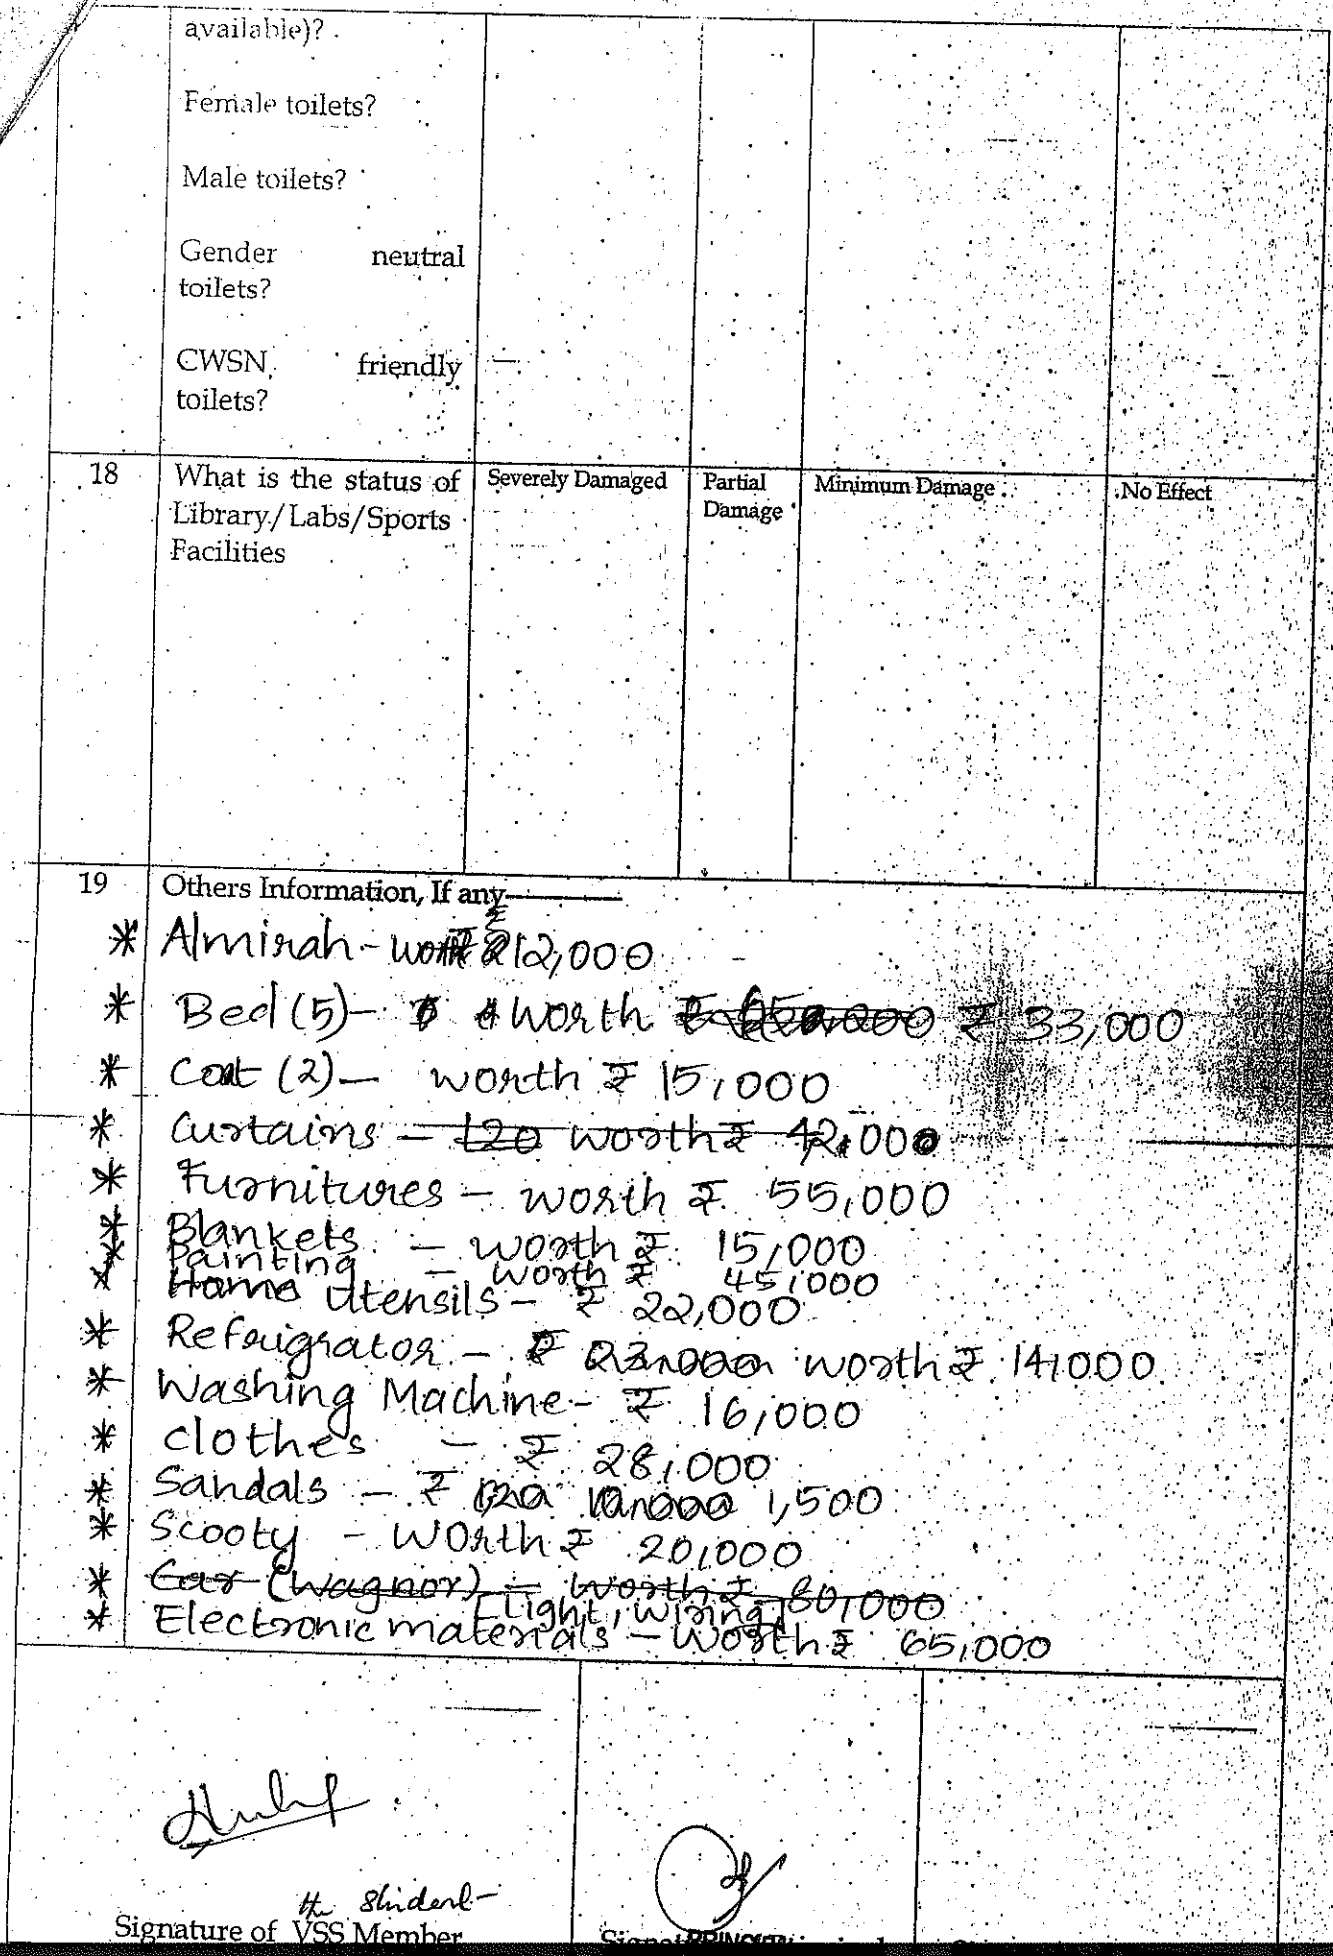 available)?
Female toilets?
Male toilets?
Gender neutral
toilets?
CWSN friendly
toilets?
18 What is the status of Severely Damaged Partial Minimum Damage No Effect
Library/Labs/Sports Damage
Facilities
19 Others Information, If any
* Almirah - worth 12,000
* Bed (5) - worth ₹ 33,000
* Coat (2) - worth ₹ 15,000
* Curtains - 120 worth ₹ 42,000
* Furnitures - worth ₹ 55,000
* Blankets - worth ₹ 15,000
* Painting - worth ₹ 45,000
* Home Utensils - ₹ 22,000
* Refrigrator - worth ₹ 14,000
* Washing Machine - ₹ 16,000
* Clothes - ₹ 28,000
* Sandals - ₹ 1,500
* Scooty - worth ₹ 20,000
* Car (Wagnor) - worth ₹ 80,000
[Light, Wiring]
* Electronic materials - worth ₹ 65,000
the Student
Signature of VSS Member